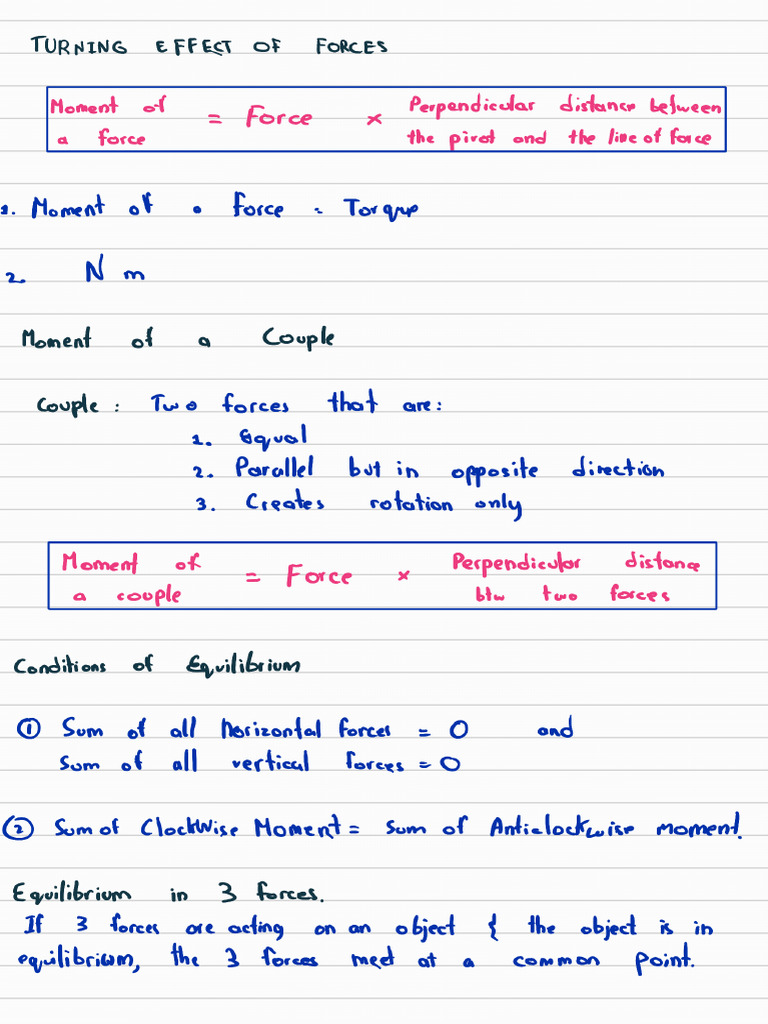 TURNING EFFECT OF FORCES
Moment of a force = Force × Perpendicular distance between the pivot and the line of force
1. Moment of a force = Torque
2. N m
Moment of a Couple
Couple : Two forces that are:
1. Equal
2. Parallel but in opposite direction
3. Creates rotation only
Moment of a couple = Force × Perpendicular distance btw two forces
Conditions of Equilibrium
① Sum of all horizontal forces = 0 and
Sum of all vertical forces = 0
② Sum of Clockwise Moment = Sum of Anticlockwise moment.
Equilibrium in 3 forces.
If 3 forces are acting on an object & the object is in
equilibrium, the 3 forces meet at a common point.